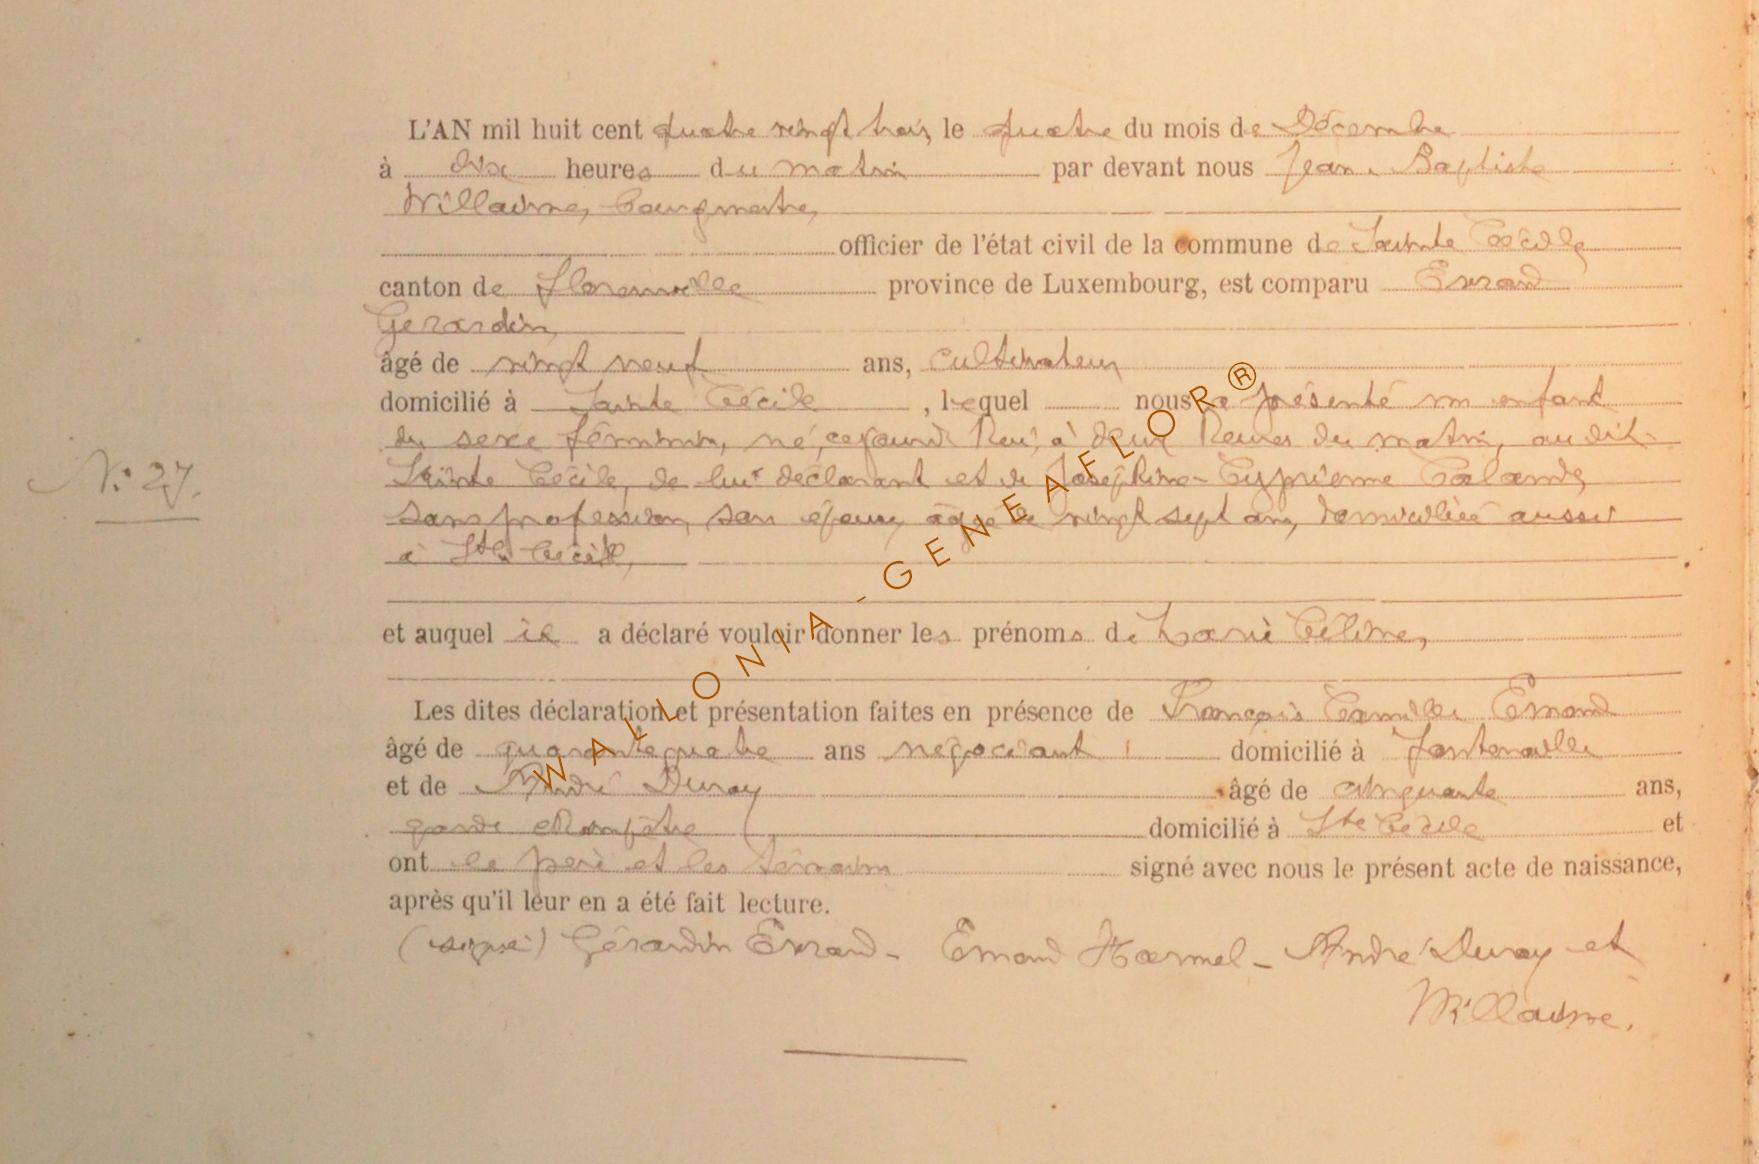 L'AN mil huit cent quatre vingt trois, le quatre du mois de Décembre
à dix heures du matin par devant nous Jean-Baptiste
Willaime, bourgmestre,
officier de l'état civil de la commune de Sainte Cécile
canton de Florenville province de Luxembourg, est comparu Evrard
Gerardin,
âgé de vingt neuf ans, cultivateur
domicilié à Sainte Cécile, lequel nous a présenté un enfant
du sexe féminin, né, cejourd'hui, à deux heures du matin, audit
N: 27.
Sainte Cécile, de lui déclarant et de Joséphine-Cyprienne Calande,
sans profession, son épouse, âgée de vingt sept ans, domiciliée aussi
à Ste Cécile,
et auquel il a déclaré vouloir donner les prénoms de Marie Céline,
Les dites déclaration et présentation faites en présence de François Camille Emond
âgé de quarante quatre ans négociant domicilié à Fontenoille
et de André Duroy âgé de cinquante ans,
garde champêtre domicilié à Ste Cécile et
ont le père et les témoins signé avec nous le présent acte de naissance,
après qu'il leur en a été fait lecture.
(signé) Gérardin Evrard - Emond Harmel - André Duroy et
Willaime.
WALLONIA - GENEAFLOR®